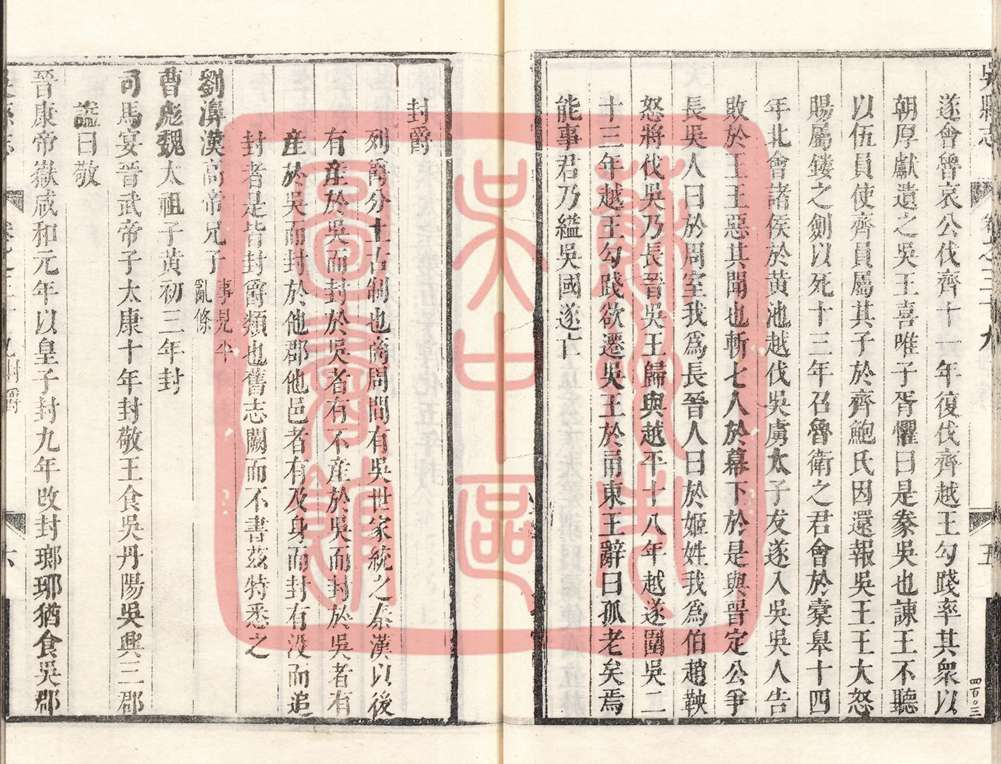 吳縣志
卷之三十九
五
四〇〇三
遂會魯哀公伐齊十一年復伐齊越王勾踐率其衆以
朝厚獻遺之吳王喜唯子胥懼曰是豢吳也諫王不聽
以伍員使齊員屬其子於齊鮑氏因還報吳王王大怒
賜屬鏤之劍以死十三年召魯衛之君會於橐皋十四
年北會諸侯於黃池越伐吳虜太子友遂入吳吳人告
敗於王王惡其聞也斬七人於幕下於是與晉定公爭
長吳人曰於周室我爲長晉人曰於姬姓我爲伯趙鞅
怒將伐吳乃長晉吳王歸與越平十八年越遂圍吳二
十三年越王勾踐欲遷吳王於甬東王辭曰孤老矣焉
能事君乃縊吳國遂亡
封爵
列爵分土古制也商周間有吳世家統之秦漢以後
有產於吳而封於吳者有不產於吳而封於吳者有
產於吳而封於他郡他邑者有及身而封有沒而追
封者是皆封爵類也舊志闕而不書茲特悉之
劉濞漢高帝兄子事見
亂條
曹彪魏太祖子黃初三年封
司馬晏晉武帝子太康十年封敬王食吳丹陽吳興三郡
諡曰敬
晉康帝嶽咸和元年以皇子封九年改封瑯琊猶食吳郡
六
蘇州市
吳中區
圖書館